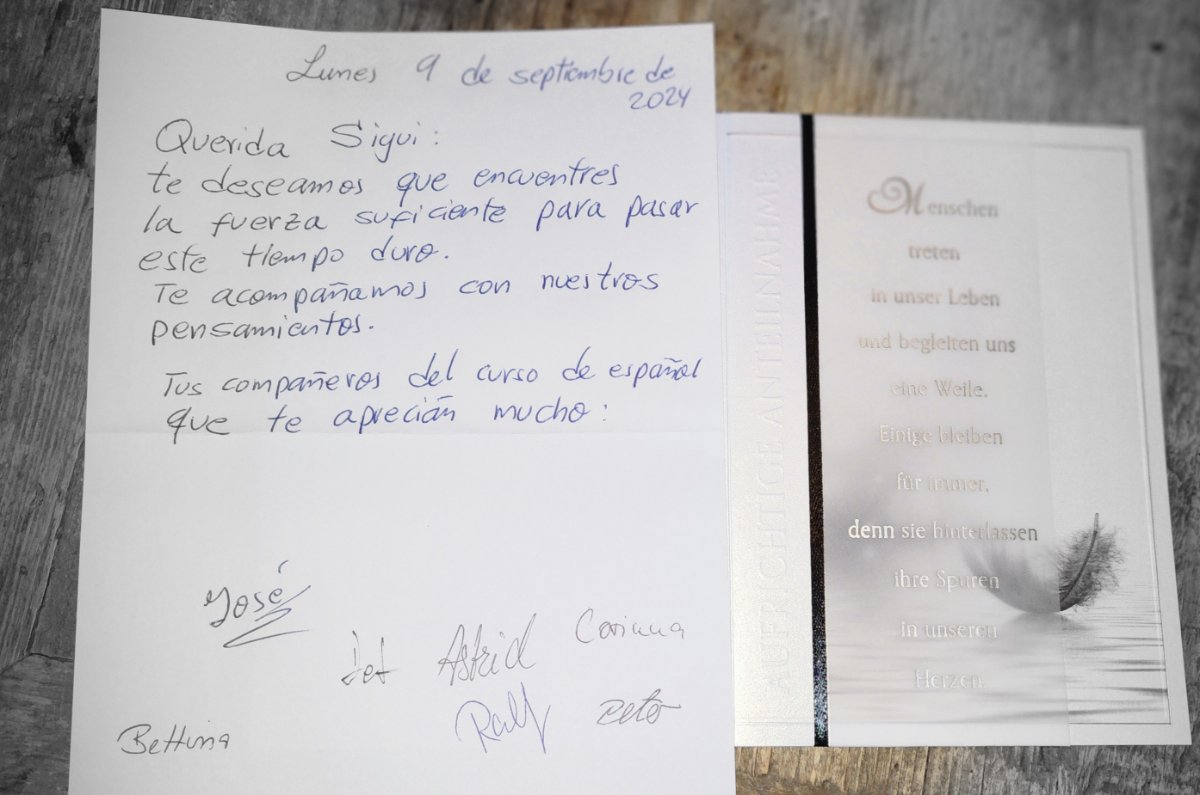 Lunes 9 de septiembre de
2024
Querida Sigui:
te deseamos que encuentres
la fuerza suficiente para pasar
este tiempo duro.
Te acompañamos con nuestros
pensamientos.
Tus compañeros del curso de español
que te aprecián mucho:
José
Astrid
Corinna
Ralf
Bettina
AUFRICHTIGE ANTEILNAHME
Menschen
treten
in unser Leben
und begleiten uns
eine Weile.
Einige bleiben
für immer,
denn sie hinterlassen
ihre Spuren
in unseren
Herzen.